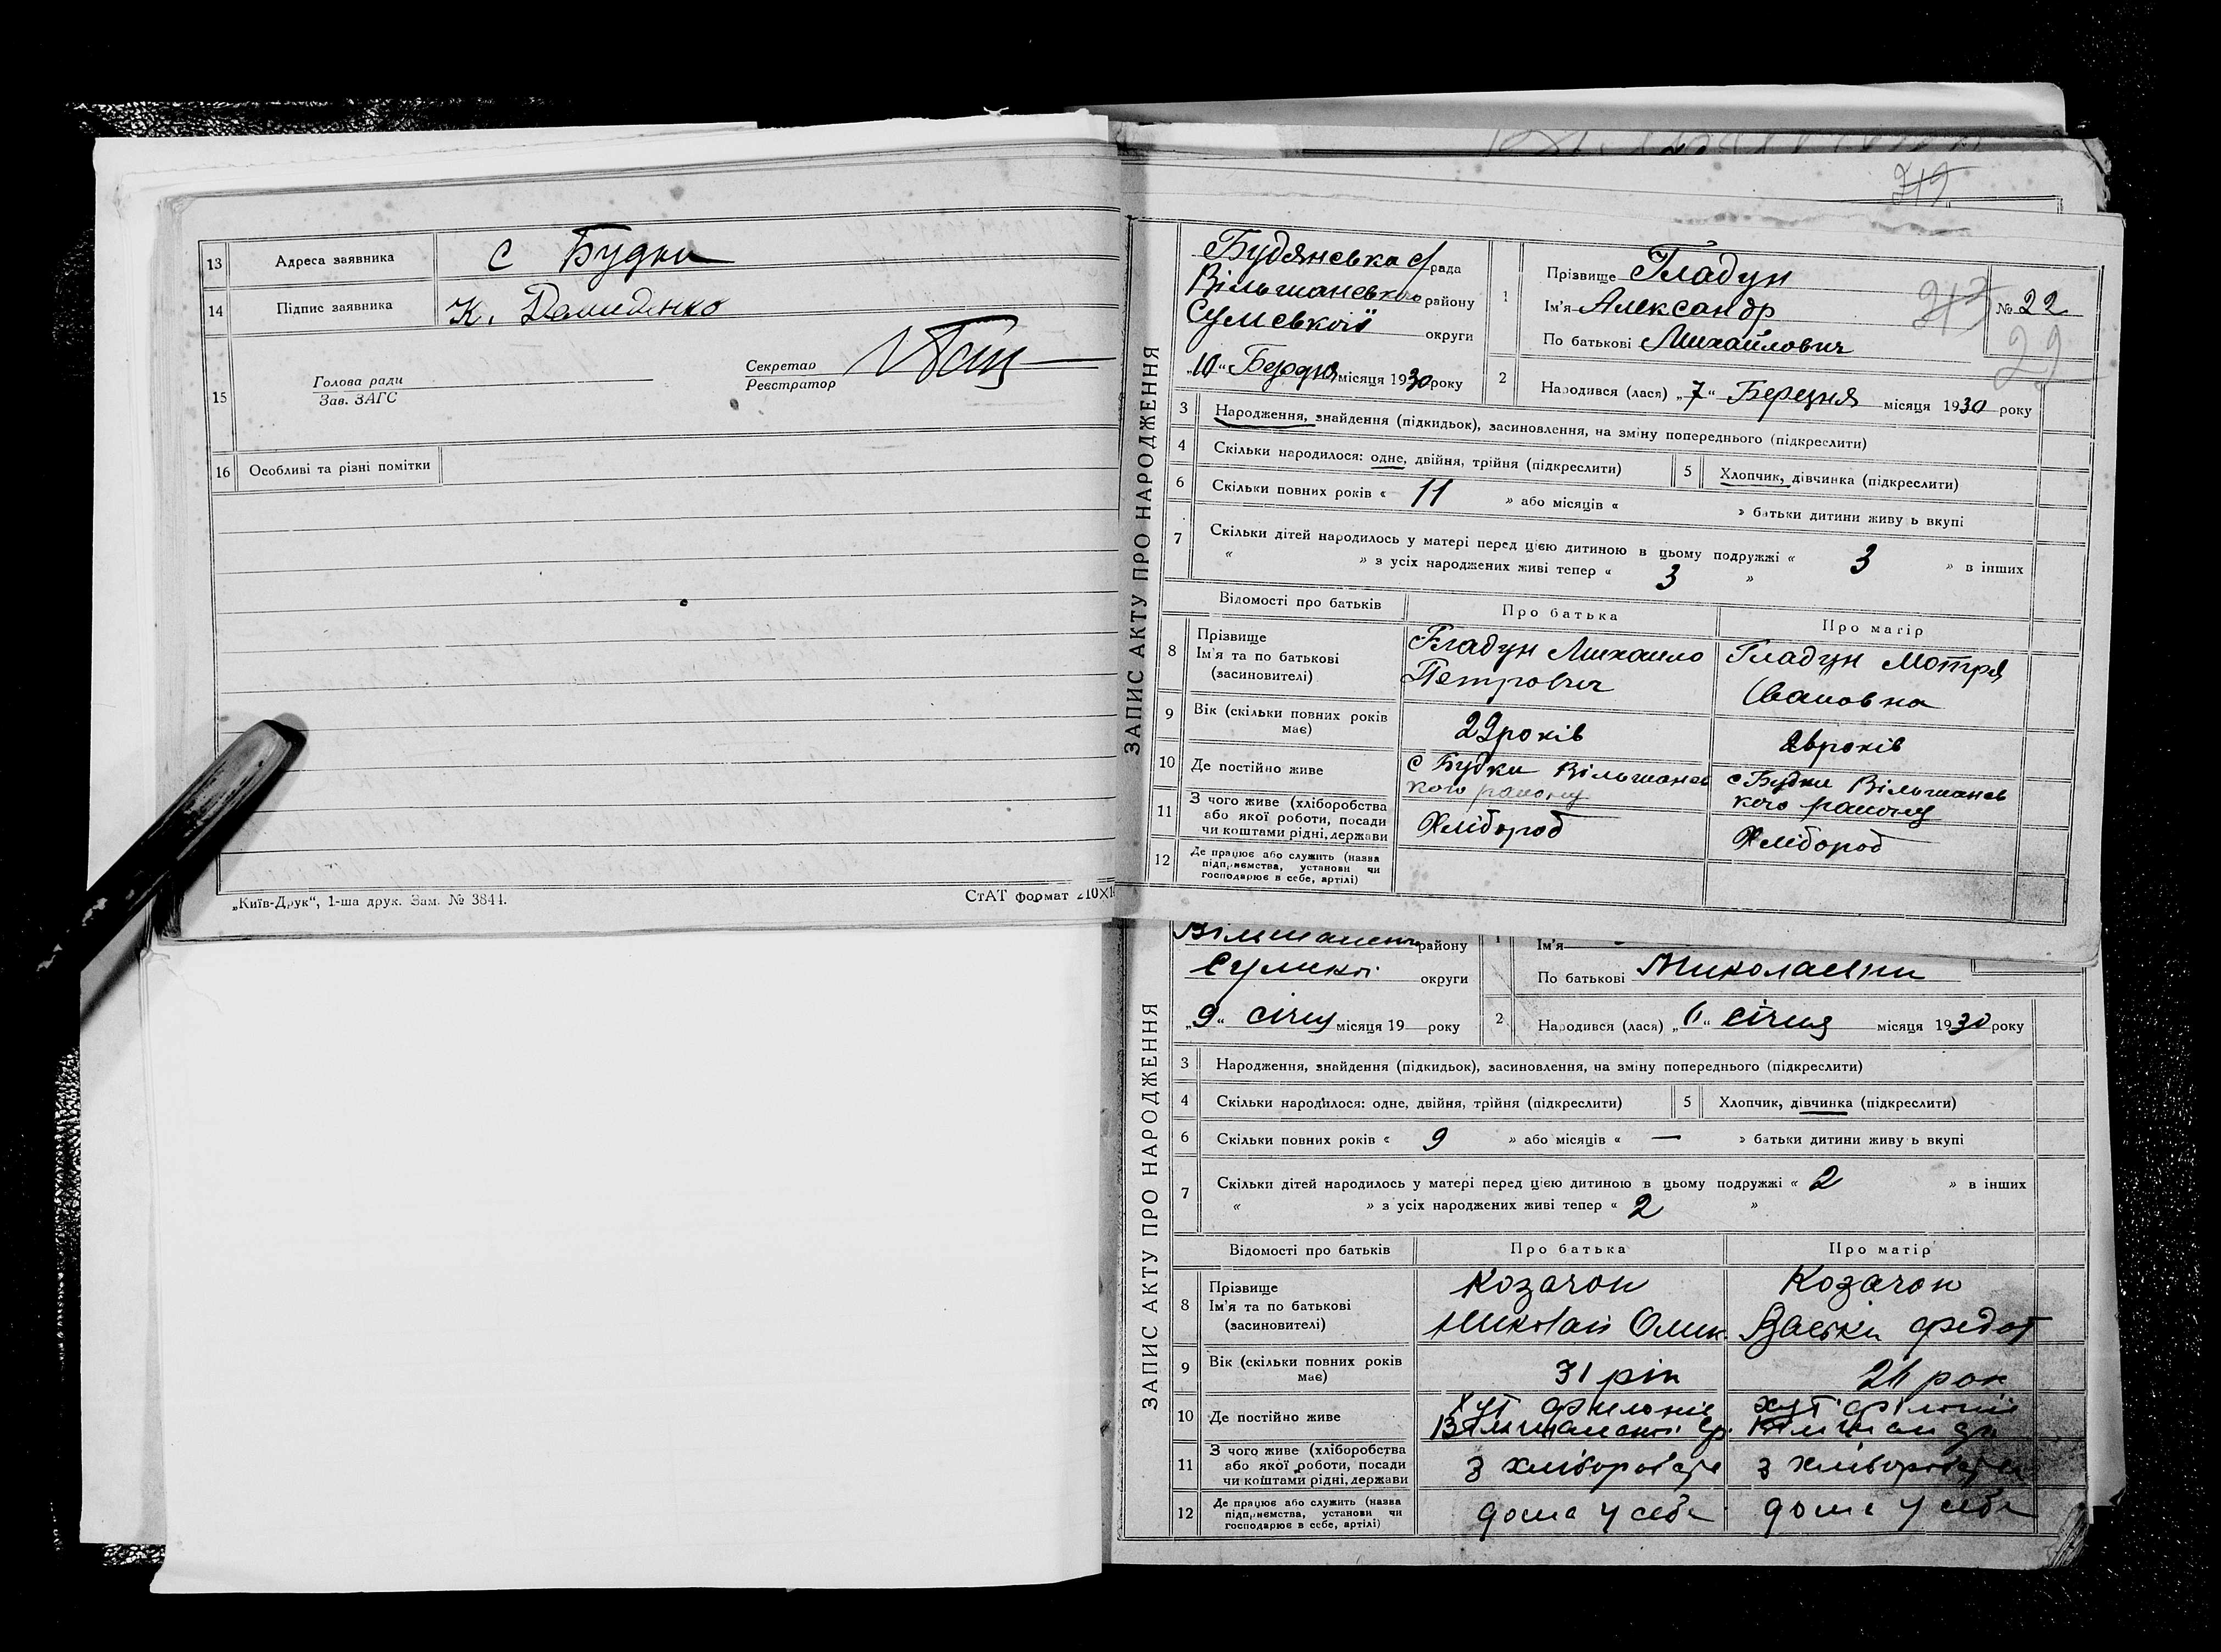 13 Адреса заявника с Будки
14 Підпис заявника К. Демиденко
15 Голова ради
Зав. ЗАГС
Секретар
Реєстратор
16 Особливі та різні помітки
„Київ-Друк“, 1-ша друк. Зам. № 3844.
СтАТ формат 210X1
ЗАПИС АКТУ ПРО НАРОДЖЕННЯ
Будянська с/рада
Вільшанського району
Сумської округи
„10“ Березня місяця 1930 року
1 Прізвище Гладун
Ім'я Александр
По батькові Михайлович
№ 22
22
2 Народився (лася) „7“ Березня місяця 1930 року
3 Народження, знайдення (підкидьок), засиновлення, на зміну попереднього (підкреслити)
4 Скільки народилося: одне, двійня, трійня (підкреслити)
5 Хлопчик, дівчинка (підкреслити)
6 Скільки повних років « 11 » або місяців « » батьки дитини живу ь вкупі
7 Скільки дітей народилось у матері перед цією дитиною в цьому подружжі « 3 » в інших
« » з усіх народжених живі тепер « 3 »
Відомості про батьків Про батька Про матір
8 Прізвище
Ім'я та по батькові
(засиновителі)
Гладун Михаило
Петрович
Гладун Мотря
Івановна
9 Вік (скільки повних років
має)
29 років
років
10 Де постійно живе
с Будки Вільшансь
кого району
с Будки Вільшансь
кого району
11 З чого живе (хліборобства
або якої роботи, посади
чи коштами рідні, держави
Хлібороб
Хлібороб
12 Де працює або служить (назва
підприємства, установи чи
господарює в себе, артілі)
ЗАПИС АКТУ ПРО НАРОДЖЕННЯ
району
округи
„9“ січня місяця 19 року
1 Ім'я
По батькові Миколаевни
2 Народився (лася) „6“ січня місяця 1930 року
3 Народження, знайдення (підкидьок), засиновлення, на зміну попереднього (підкреслити)
4 Скільки народилося: одне, двійня, трійня (підкреслити)
5 Хлопчик, дівчинка (підкреслити)
6 Скільки повних років « 9 » або місяців « — » батьки дитини живу ь вкупі
7 Скільки дітей народилось у матері перед цією дитиною в цьому подружжі « 2 » в інших
« » з усіх народжених живі тепер « 2 »
Відомості про батьків Про батька Про матір
8 Прізвище
Ім'я та по батькові
(засиновителі)
Козачок
Николай Олик.
Козачок
Федот
9 Вік (скільки повних років
має)
31 рік
рок
10 Де постійно живе
хут
хут
11 З чого живе (хліборобства
або якої роботи, посади
чи коштами рідні, держави
з
з
12 Де працює або служить (назва
підприємства, установи чи
господарює в себе, артілі)
дома у себе
дома у себе